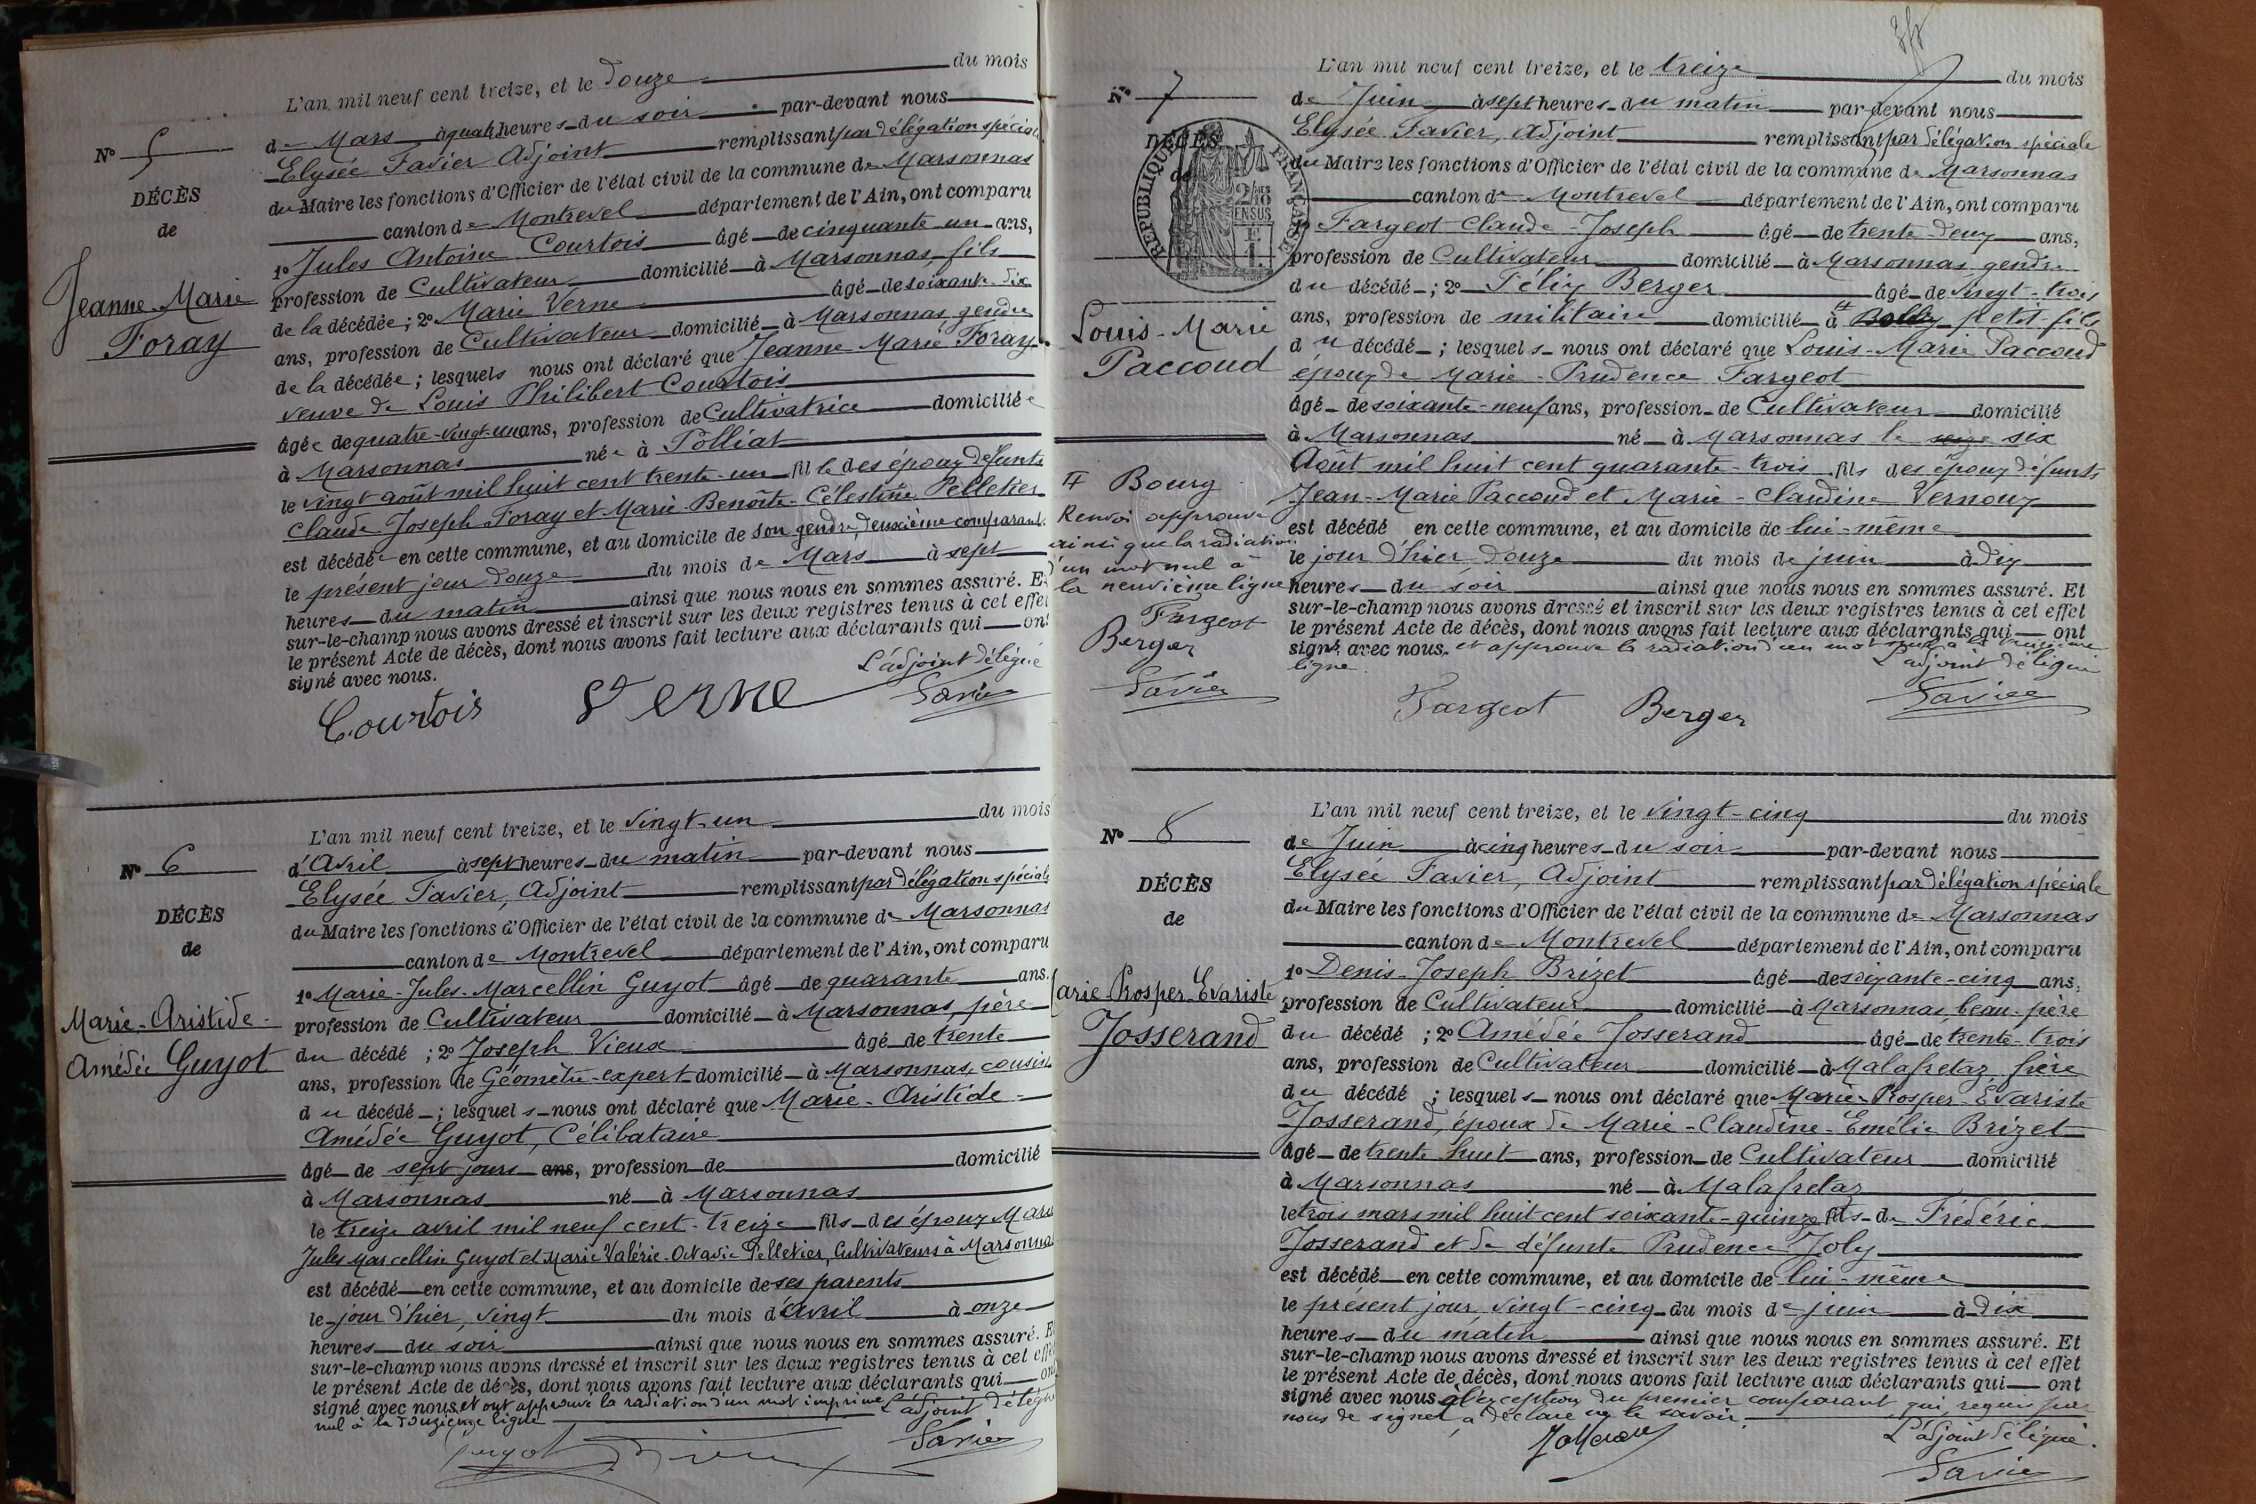 L'an mil neuf cent treize, et le douze du mois
de Mars à quatre heures du soir par-devant nous
Elysée Favier Adjoint remplissant par délégation spéciale
du Maire les fonctions d'Officier de l'état civil de la commune de Marsonnas
canton de Montrevel département de l'Ain, ont comparu
1º Jules Antoine Courtois âgé de cinquante un ans,
profession de Cultivateur domicilié à Marsonnas, fils
de la décédée; 2º Marie Verne âgé de soixante dix
ans, profession de Cultivateur domicilié à Marsonnas, gendre
de la décédée; lesquels nous ont déclaré que Jeanne Marie Foray
veuve de Louis Philibert Courtois
âgée de quatre-vingt-un ans, profession de Cultivatrice domiciliée
à Marsonnas née à Polliat
le vingt août mil huit cent trente-un fille des époux défunts
Claude Joseph Foray et Marie-Benoîte-Célestine Pelletier
est décédée en cette commune, et au domicile de son gendre, deuxième comparant
le présent jour douze du mois de Mars à sept
heures du matin ainsi que nous nous en sommes assuré. E
sur-le-champ nous avons dressé et inscrit sur les deux registres tenus à cet effet
le présent Acte de décès, dont nous avons fait lecture aux déclarants qui ont
signé avec nous. L'adjoint délégué
Courtois Verne Favier
Nº 5
DÉCÈS
de
Jeanne-Marie
Foray
L'an mil neuf cent treize, et le vingt-un du mois
d'Avril à sept heures du matin par-devant nous
Elysée Favier, Adjoint remplissant par délégation spéciale
du Maire les fonctions d'Officier de l'état civil de la commune de Marsonnas
canton de Montrevel département de l'Ain, ont comparu
1º Marie-Jules-Marcellin Guyot âgé de quarante ans,
profession de Cultivateur domicilié à Marsonnas, père
du décédé ; 2º Joseph Vieux âgé de trente
ans, profession de Géomètre-expert domicilié à Marsonnas, cousin
du décédé ; lesquels nous ont déclaré que Marie-Aristide-
Amédée Guyot, Célibataire
âgé de sept jours ans, profession de domicilié
à Marsonnas né à Marsonnas
le treize avril mil neuf cent-treize fils des époux Marie
Jules Marcellin Guyot et Marie Valérie-Octavie Pelletier, Cultivateurs à Marsonnas
est décédé en cette commune, et au domicile de ses parents
le jour d'hier, vingt du mois d'avril à onze
heures du soir ainsi que nous nous en sommes assuré. E
sur-le-champ nous avons dressé et inscrit sur les deux registres tenus à cet effet
le présent Acte de décès, dont nous avons fait lecture aux déclarants qui ont
signé avec nous, et ont approuvé la radiation d'un mot imprimé L'adjoint délégué
nul à la douzième ligne
Guyot Vieux Favier
Nº 6
DÉCÈS
de
Marie-Aristide-
Amédée Guyot
L'an mil neuf cent treize, et le treize du mois
de Juin à sept heures du matin par-devant nous
Elysée Favier, Adjoint remplissant par délégation spéciale
du Maire les fonctions d'Officier de l'état civil de la commune de Marsonnas
canton de Montrevel département de l'Ain, ont comparu
Fargeot Claude-Joseph âgé de trente-deux ans,
profession de Cultivateur domicilié à Marsonnas gendre
du décédé ; 2º Félix Berger âgé de vingt-trois
ans, profession de militaire domicilié à petit-fils
du décédé ; lesquels nous ont déclaré que Louis-Marie Paccoud
époux de Marie-Prudence Fargeot
âgé de soixante-neuf ans, profession de Cultivateur domicilié
à Marsonnas né à Marsonnas le seize six
Août mil huit cent quarante-trois fils des époux défunts
Jean-Marie Paccoud et Marie-Claudine Vernoux
est décédé en cette commune, et au domicile de lui-même
le jour d'hier douze du mois de juin à dix
heures du soir ainsi que nous nous en sommes assuré. Et
sur-le-champ nous avons dressé et inscrit sur les deux registres tenus à cet effet
le présent Acte de décès, dont nous avons fait lecture aux déclarants qui ont
signé avec nous. et approuvé la radiation d'un mot nul à la neuvième
ligne. L'adjoint délégué
Fargeot Berger Favier
Nº 7
DÉCÈS
de
RÉPUBLIQUE FRANÇAISE
2/10 EN SUS
Louis-Marie
Paccoud
Bourg
Renvoi approuvé
ainsi que la radiation
d'un mot nul à
la neuvième ligne
Fargeot
Berger
Favier
L'an mil neuf cent treize, et le vingt-cinq du mois
de Juin à cinq heures du soir par-devant nous
Elysée Favier, Adjoint remplissant par délégation spéciale
du Maire les fonctions d'Officier de l'état civil de la commune de Marsonnas
canton de Montrevel département de l'Ain, ont comparu
1º Denis-Joseph Brizet âgé de soixante-cinq ans,
profession de Cultivateur domicilié à Marsonnas, beau-père
du décédé ; 2º Amédée Josserand âgé de trente-trois
ans, profession de Cultivateur domicilié à Malafretaz, frère
du décédé ; lesquels nous ont déclaré que Marie-Prosper-Evariste
Josserand, époux de Marie-Claudine-Emélie Brizet
âgé de trente huit ans, profession de Cultivateur domicilié
à Marsonnas né à Malafretaz
le trois mars mil huit cent soixante-quinze fils de Frédéric
Josserand et de défunte Prudence Joly
est décédé en cette commune, et au domicile de lui-même
le présent jour, vingt-cinq du mois de juin à dix
heures du matin ainsi que nous nous en sommes assuré. Et
sur-le-champ nous avons dressé et inscrit sur les deux registres tenus à cet effet
le présent Acte de décès, dont nous avons fait lecture aux déclarants qui ont
signé avec nous à l'exception du premier comparant qui, requis par
nous de signer, a déclaré ne le savoir. L'adjoint délégué.
Josserand Favier
Nº 8
DÉCÈS
de
Marie-Prosper-Evariste
Josserand